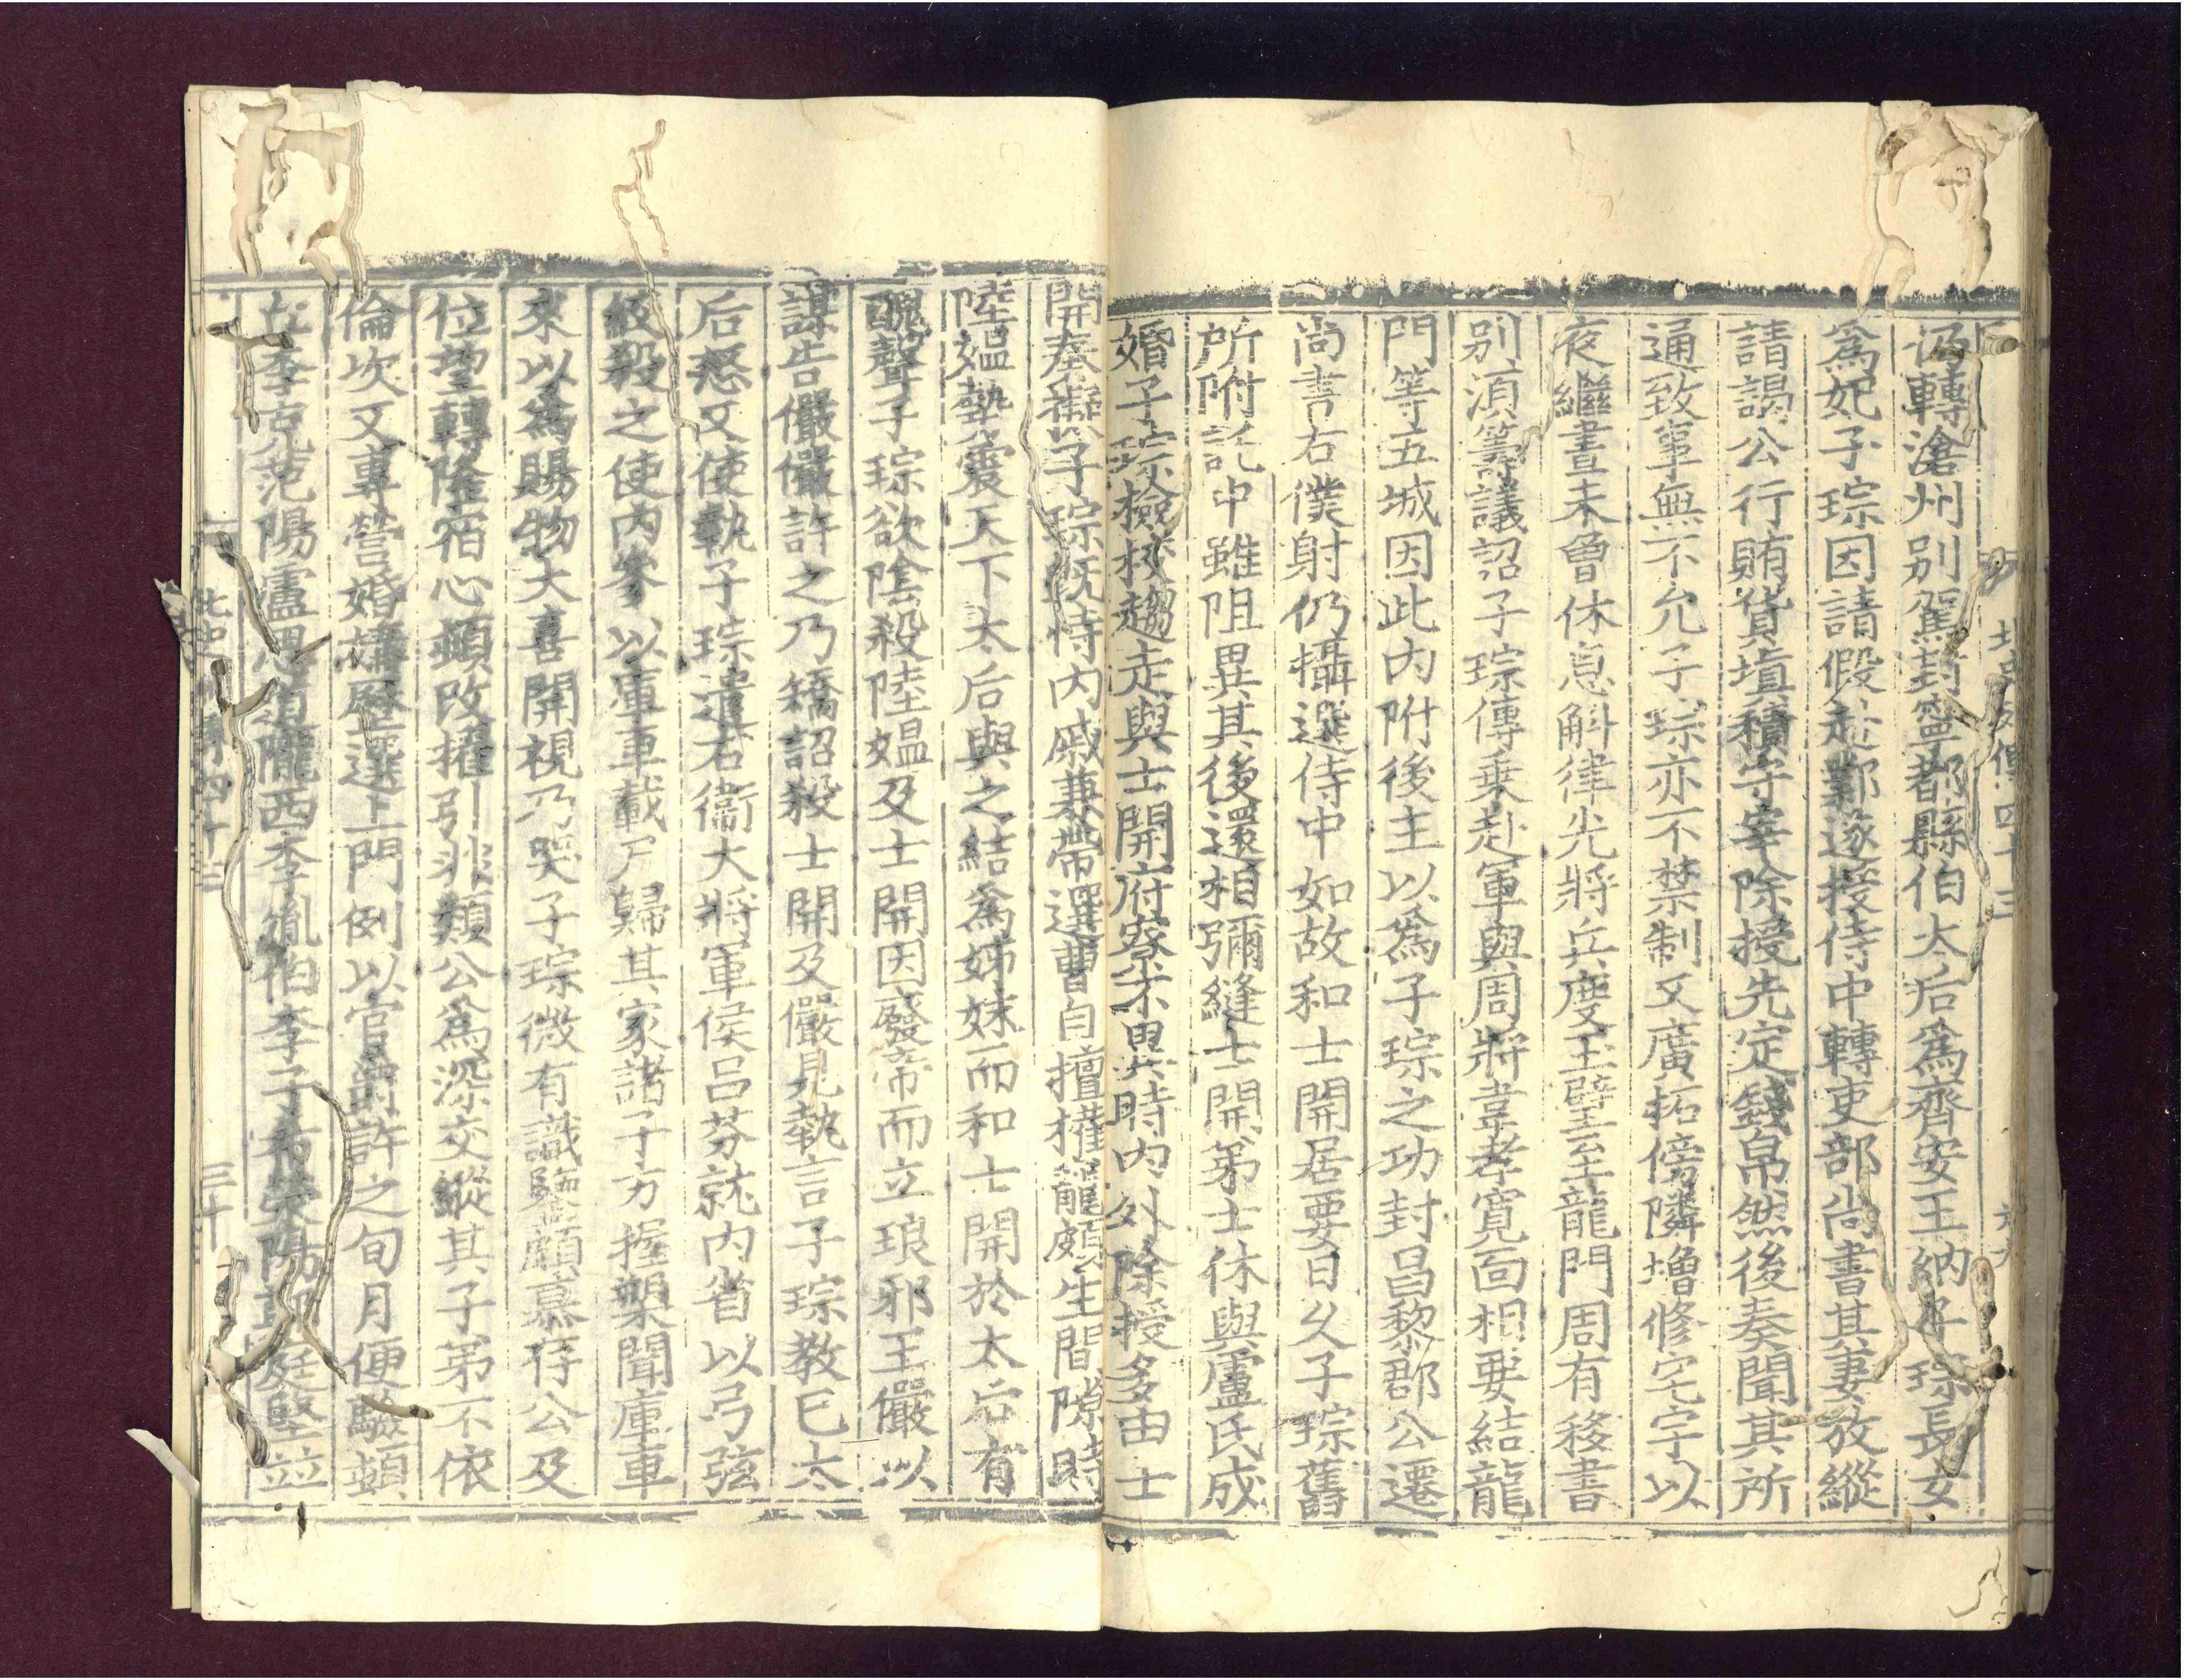 仍轉滄州别駕封寧都縣伯太后爲齊安王納子琮長女
爲妃子琮因請假赴鄴遂授侍中轉吏部尚書其妻放縱
請謁公行賄貨填積守宰除授先定錢帛然後奏聞其所
通致事無不允子琮亦不禁制又廣拓傍隣增修宅宇以
夜繼晝未曾休息斛律光將兵度玉壁至龍門周有移書
别湏籌議詔子琮傳乗赴軍與周將韋孝寛面相要結龍
門等五城因此内附後主以爲子琮之功封昌黎郡公遷
尚書右僕射仍攝選侍中如故和士開居要日久子琮舊
所附託中雖阻異其後還相彌縫士開弟士休與盧氏成
婚子琮檢校趨走與士開府寮不異時内外除授多由士
開奏擬子琮既恃内戚兼帶選曹自擅權寵頗生間隙時
陸媪勢震天下太后與之結爲姊妹而和士開於太后有
醜聲子琮欲陰殺陸媪及士開因廢帝而立琅邪王儼以
謀告儼儼許之乃矯詔殺士開及儼見執言子琮教已太
后怒又使執子琮遣右衞大將軍侯吕芬就内省以弓弦
絞殺之使内參以庫車載尸歸其家諸子方握槊聞庫車
來以爲賜物大喜開視乃哭子琮微有識鑒頗慕存公及
位望轉隆宿心頓改擢引非類公爲深交縱其子弟不依
倫次又專營婚媾歷選上門例以官爵許之旬月便驗頓
丘李克范陽盧思道隴西李胤伯李子希榮陽鄭庭堅竝
北史 傳四十三
三十